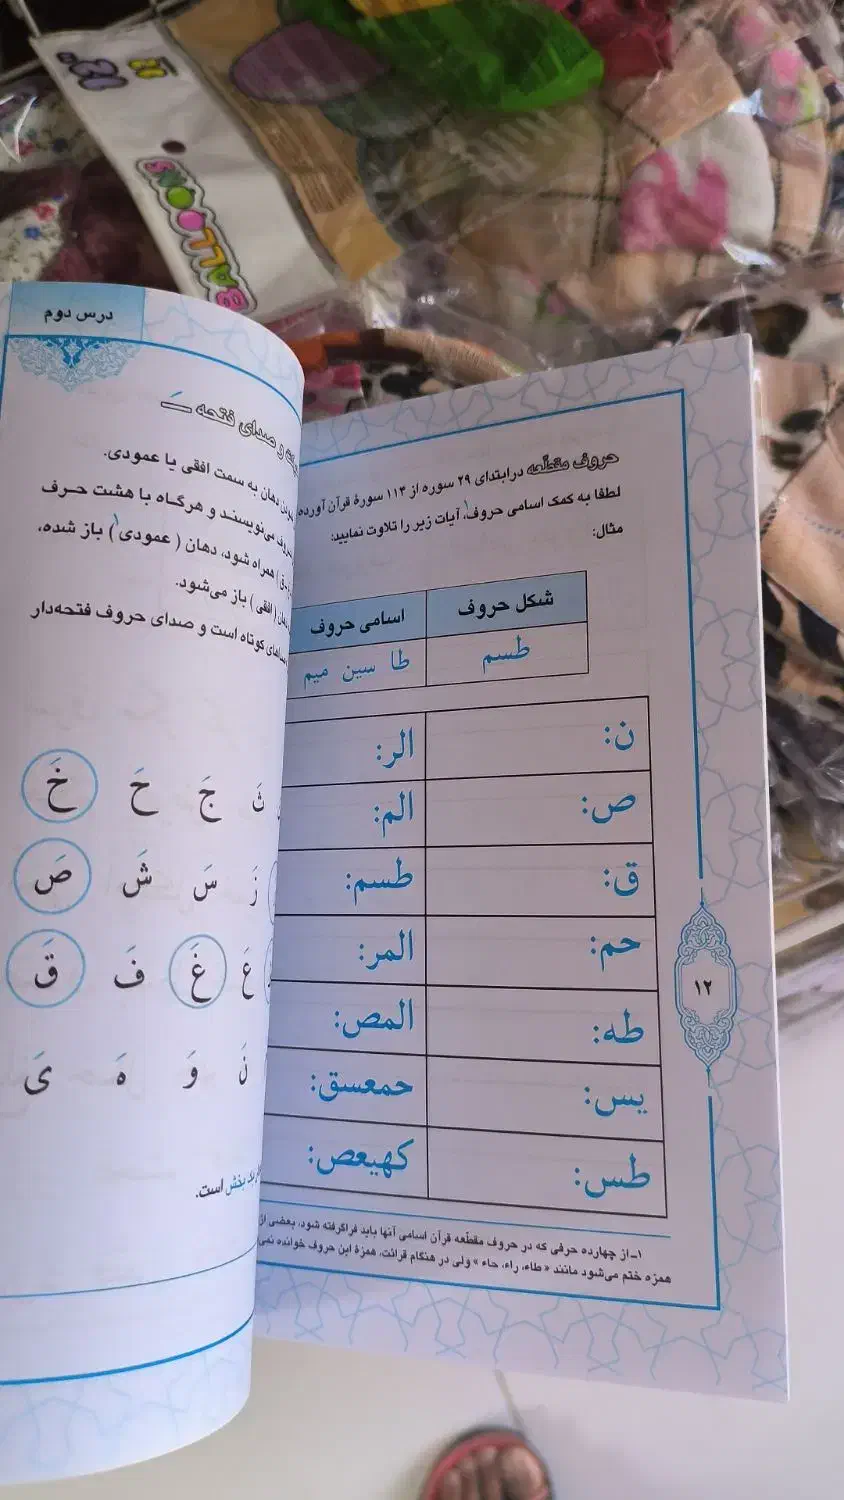 BALLOONS
حروف مقطّعه در ابتدای ۲۹ سوره از ۱۱۴ سورهٔ قرآن آورده
لطفا به کمک اسامی حروف۱، آیات زیر را تلاوت نمایید:
مثال:
شکل حروف اسامی حروف
طسم طا سین میم
ن: الر:
ص: الم:
ق: طسم:
حم: المر:
طه: المص:
یس: حمعسق:
طس: کهیعص:
۱ـ از چهارده حرفی که در حروف مقطّعه قرآن اسامی آنها باید فراگرفته شود، بعضی از
همزه ختم می‌شود مانند «طاء، راء، حاء» ولی در هنگام قرائت، همزهٔ این حروف خوانده نمی
۱۲
درس دوم
و صدای فتحه ـَ
دهان به سمت افقی یا عمودی.
حروف می‌نویسند و هرگاه با هشت حرف
ق) همراه شود، دهان (عمودی۱) باز شده،
دهان (افقی) باز می‌شود.
صداهای کوتاه است و صدای حروف فتحه‌دار
ثَ جَ حَ خَ
زَ سَ شَ صَ
عَ غَ فَ قَ
نَ وَ هَ یَ
بخش است.